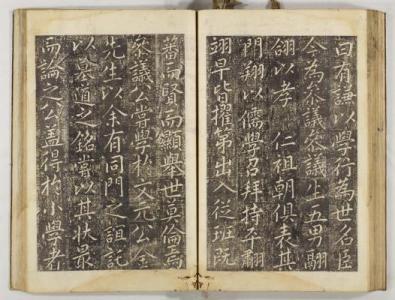 曰有謙以學行為世名臣
今為參議參議生五男翮
翎以孝 仁祖朝俱表其
門翔以儒學召拜持平翿
翊早皆擢第出入從班既
蕃而賢而顯舉世莫倫焉
參議公嘗學於文元公金
先生以余有同門之誼託
以墓道之銘嘗以其狀最
而論之公盖得於小學者